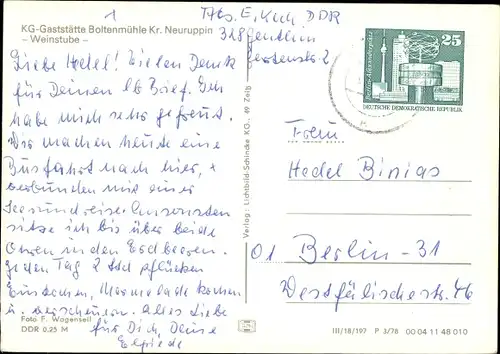 1
Abs. E. Kuch, DDR
328 Genthin
Gartenstr. 2
KG-Gaststätte Boltenmühle Kr. Neuruppin
– Weinstube –
Liebe Hedel! Vielen Dank
für Deinen lb Brief. Ich
habe mich sehr gefreut.
Wir machen heute eine
Busfahrt nach hier, +
verbunden mit einer
Seerundreise. Ansonsten
sitze ich bis über beide
Ohren in den Erdbeeren.
Jeden Tag 2 Std pflücken
Einkochen, Marmelade kochen
u. verscheuern. Alles Liebe
für Dich, Deine
Elfriede
Foto F. Wagenseil
DDR 0,25 M
Verlag: Lichtbild-Schincke KG., 49 Zeitz
25
Berlin-Alexanderplatz
DEUTSCHE DEMOKRATISCHE REPUBLIK
Frau
Hedel Binias
01 Berlin-31
Westfälischestr. 46
III/18/197 P 3/76 00 04 11 48 010